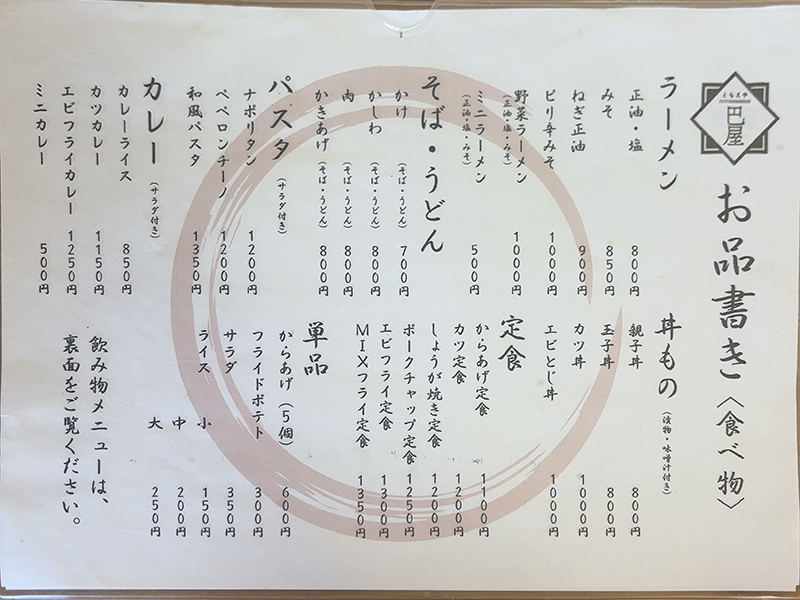 ともえや
巴屋
お品書き〈食べ物〉
ラーメン
正油・塩 800円
みそ 850円
ねぎ正油 900円
ピリ辛みそ 1000円
野菜ラーメン(正油・塩・みそ) 1000円
ミニラーメン(正油・塩・みそ) 500円
そば・うどん
かけ(そば・うどん) 700円
かしわ(そば・うどん) 800円
肉(そば・うどん) 800円
かきあげ(そば・うどん) 800円
パスタ(サラダ付き)
ナポリタン 1200円
ペペロンチーノ 1200円
和風パスタ 1350円
カレー(サラダ付き)
カレーライス 850円
カツカレー 1150円
エビフライカレー 1250円
ミニカレー 500円
丼もの(漬物・味噌汁付き)
親子丼 800円
玉子丼 800円
カツ丼 1000円
エビとじ丼 1000円
定食
からあげ定食 1100円
カツ定食 1200円
しょうが焼き定食 1200円
ポークチャップ定食 1250円
エビフライ定食 1300円
MIXフライ定食 1350円
単品
からあげ(5個) 600円
フライドポテト 300円
サラダ 350円
ライス 小 150円
中 200円
大 250円
飲み物メニューは、
裏面をご覧ください。